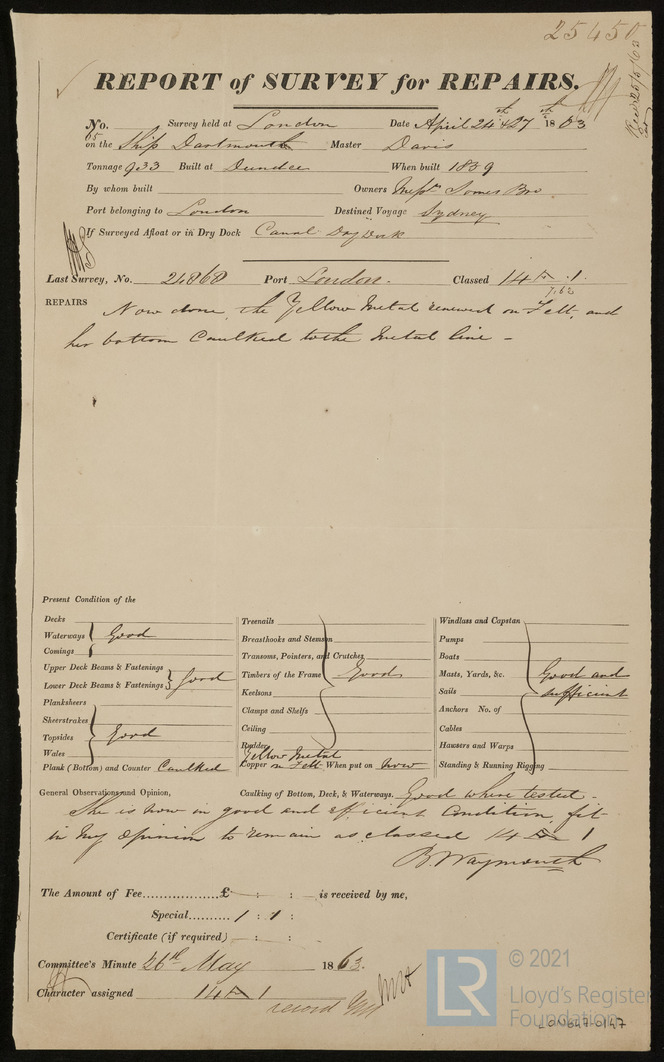 25450
REPORT of SURVEY for REPAIRS.
No. Survey held at London Date April 24th & 27th 1863
65 on the Ship Dartmouth Master Davis
Tonnage 933 Built at Dundee When built 1859
By whom built Owners Messrs Somes Bro
Port belonging to London Destined Voyage Sydney
If Surveyed Afloat or in Dry Dock Canal Dry Dock
Last Survey, No. 24868 Port London. Classed 14 A .1.
7,62
REPAIRS Now done, the Yellow Metal renewed on Felt, and
her bottom Caulked to the Metal line -
Present Condition of the
Decks
Waterways Good
Comings
Upper Deck Beams & Fastenings
Lower Deck Beams & Fastenings Good
Planksheers
Sheerstrakes
Topsides Good
Wales
Plank (Bottom) and Counter Caulked
Treenails
Breasthooks and Stemson
Transoms, Pointers, and Crutches
Timbers of the Frame Good
Keelsons
Clamps and Shelfs
Ceiling
Rudder
Yellow Metal
Copper on Felt When put on now
Windlass and Capstan
Pumps
Boats
Masts, Yards, &c. Good and
Sails sufficient
Anchors No. of
Cables
Hausers and Warps
Standing & Running Rigging
General Observations and Opinion, Caulking of Bottom, Deck, & Waterways, Good where tested -
She is now in good and efficient Condition, fit
in my Opinion to remain as classed 14 A 1
B. Waymouth
The Amount of Fee..................£ : : is received by me,
Special.......... 1 : 1 :
Certificate (if required) : :
Committee's Minute 26th May 1863.
Character assigned 14 A 1
record
LR
© 2021
Lloyd's Register
Foundation
LON647-0147